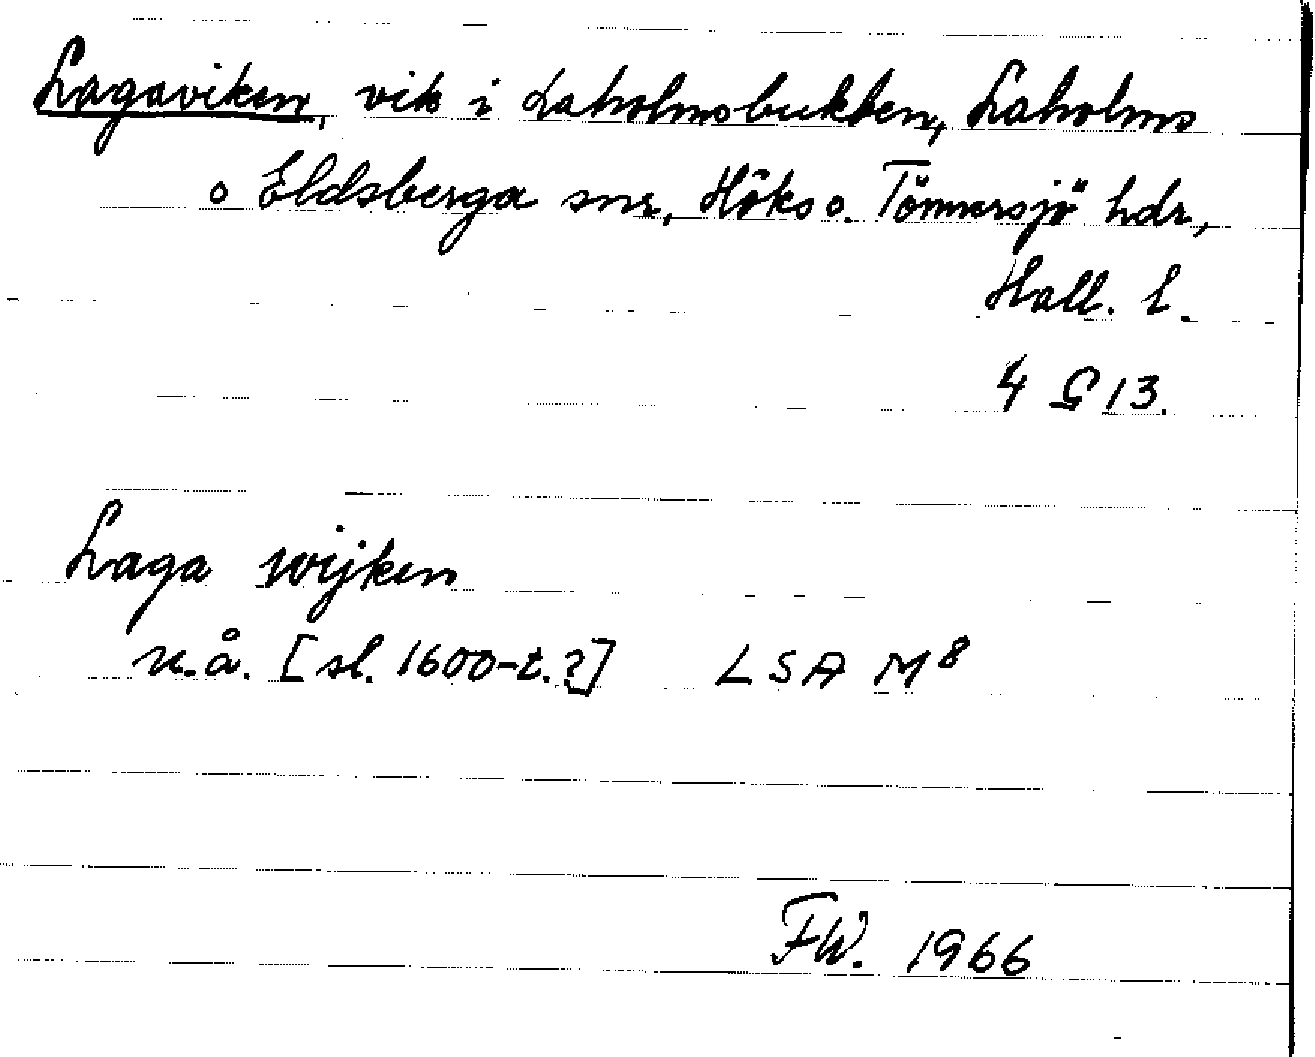 Lagaviken, vik i Laholmsbukten, Laholms
o Eldsberga snr, Höks o. Tönnersjö hdr,
Hall. l.
4 C 13.
Laga wijken
u.å. [sl. 1600-t.?] LSA M8
FW. 1966